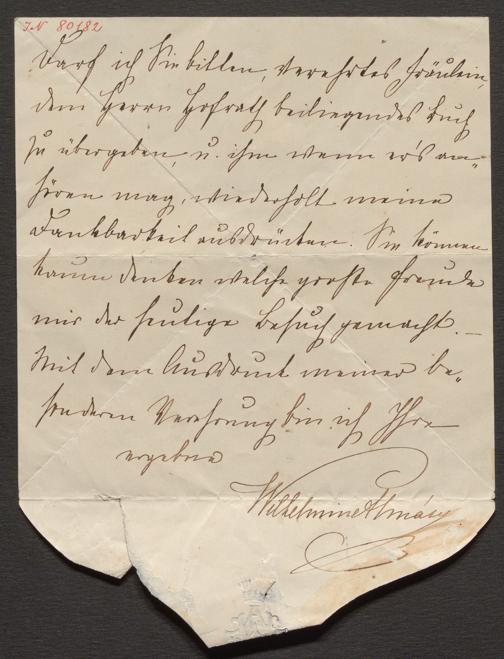 J.N 80182
Darf ich Sie bitten, verehrtes Fräulein,
dem Herrn Hofrath beiliegendes Buch
zu übergeben, u. ihm wenn er's an-
hören mag, wiederholt meine
Dankbarkeit ausdrücken. Sie können
kaum denken welche große Freude
mir der heutige Besuch gemacht. —
Mit dem Ausdruck meiner be-
sonderen Verehrung bin ich Ihre
ergebene
Wilhelmine Almásy